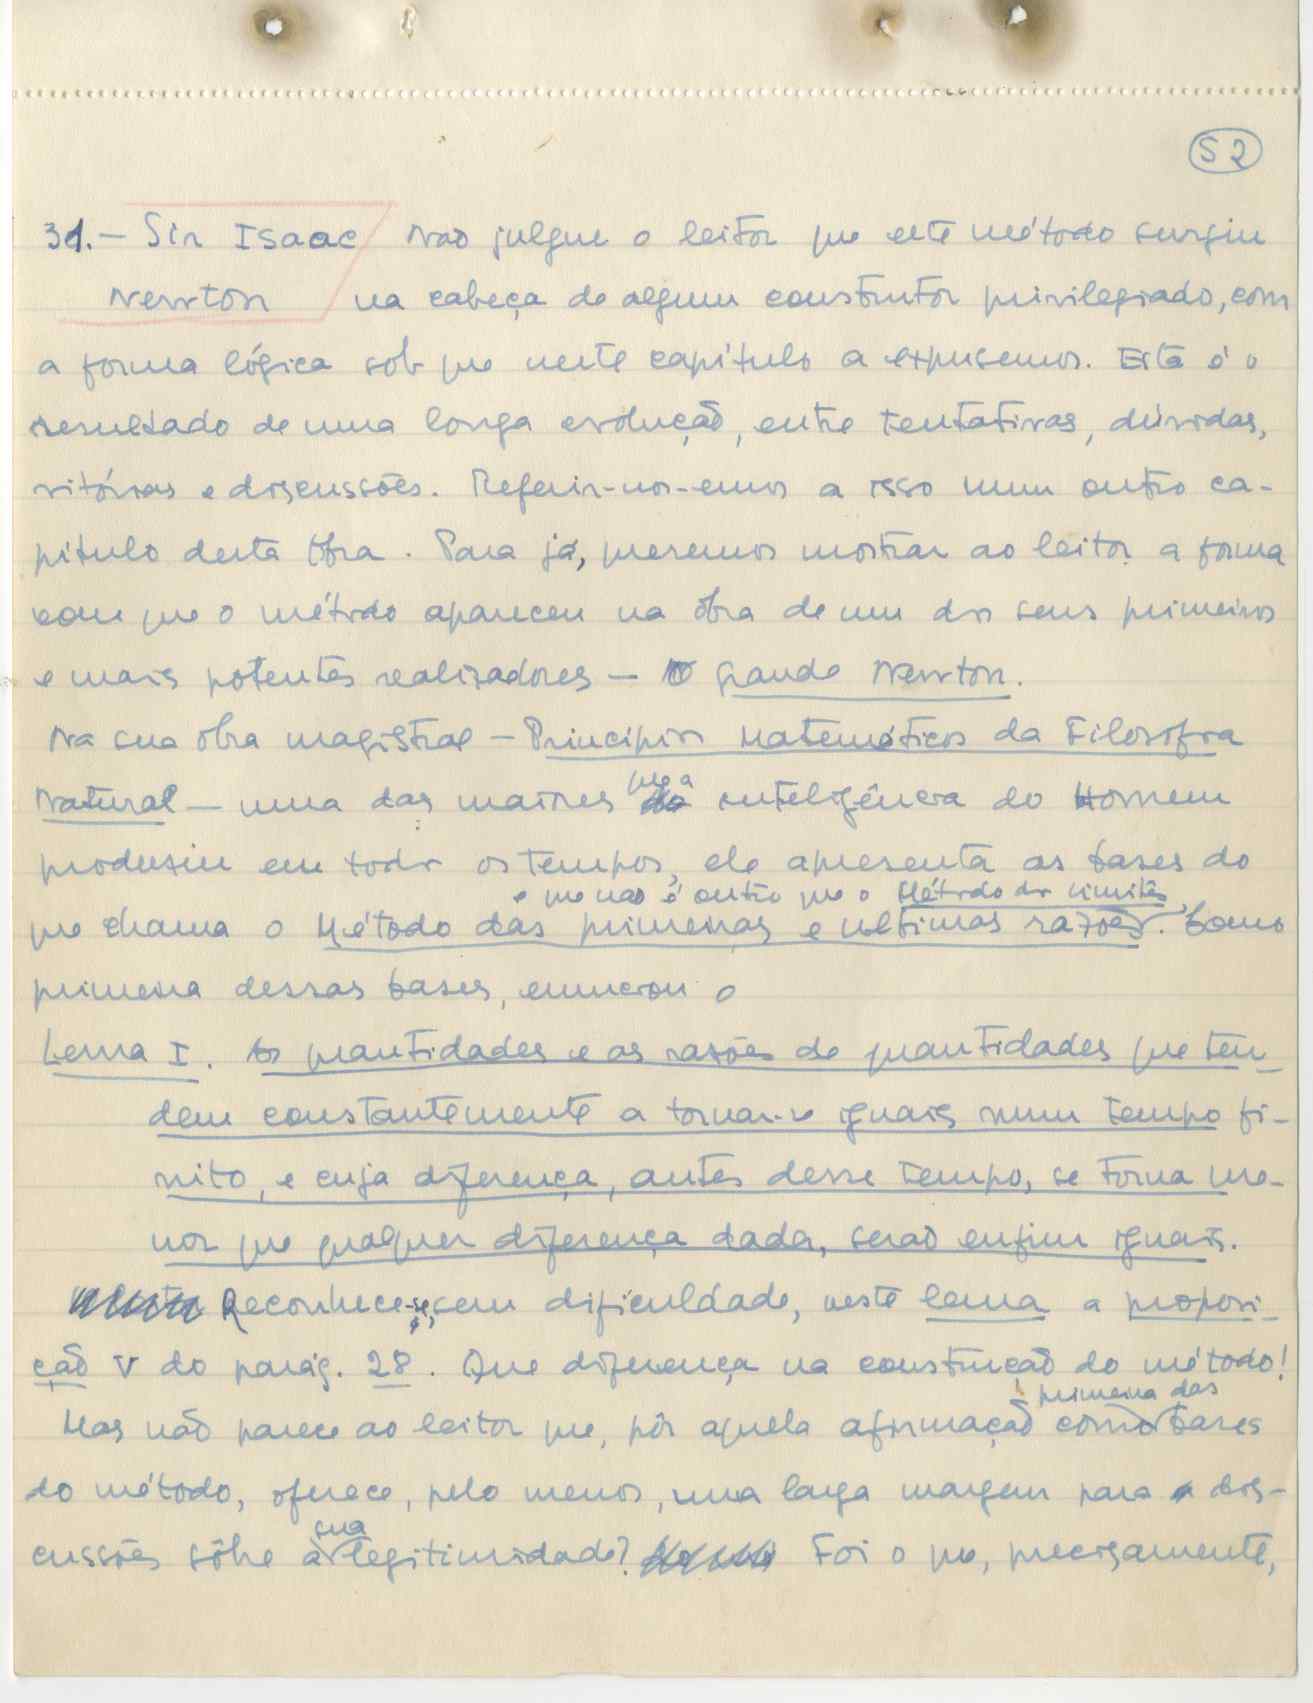 52
31. — Sir Isaac Não julgue o leitor que este método surgiu
Newton na cabeça de algum construtor privilegiado, com
a forma lógica sob que neste capítulo a expusemos. Esta é o
resultado de uma longa evolução, entre tentativas, dúvidas,
vitórias e discussões. Referir-nos-emos a isso num outro ca-
pítulo desta obra. Para já, queremos mostrar ao leitor a forma
com que o método apareceu na obra de um dos seus primeiros
e mais potentes realizadores — o grande Newton.
Na sua obra magistral — Princípios Matemáticos da Filosofia
que a
Natural — uma das maiores inteligência do Homem
produziu em todos os tempos, ele apresenta as bases do
e que não é outro que o Método dos limites,
que chama o Método das primeiras e ultimas razões. Como
primeira dessas bases, enuncia o
Lema I. As quantidades e as razões de quantidades que ten-
dem constantemente a tornar-se iguais num tempo fi-
nito, e cuja diferença, antes desse tempo, se torna me-
nor que qualquer diferença dada, serão enfim iguais.
Reconhece-se, sem dificuldade, neste lema a proposi-
ção V do parág. 28. Que diferença na construção do método!
primeira das
Mas não parece ao leitor que, pôr aquela afirmação como bases
do método, oferece, pelo menos, uma larga margem para dis-
sua
cussões sôbre a legitimidade? Foi o que, precisamente,